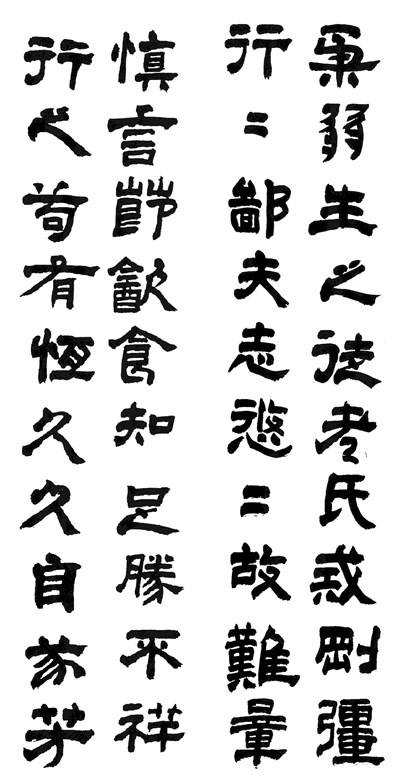 柔弱生之徒老氏戒剛彊
行〻鄙夫志悠〻故難量
慎言節飲食知足勝不祥
行之苟有恆久久自芬芳